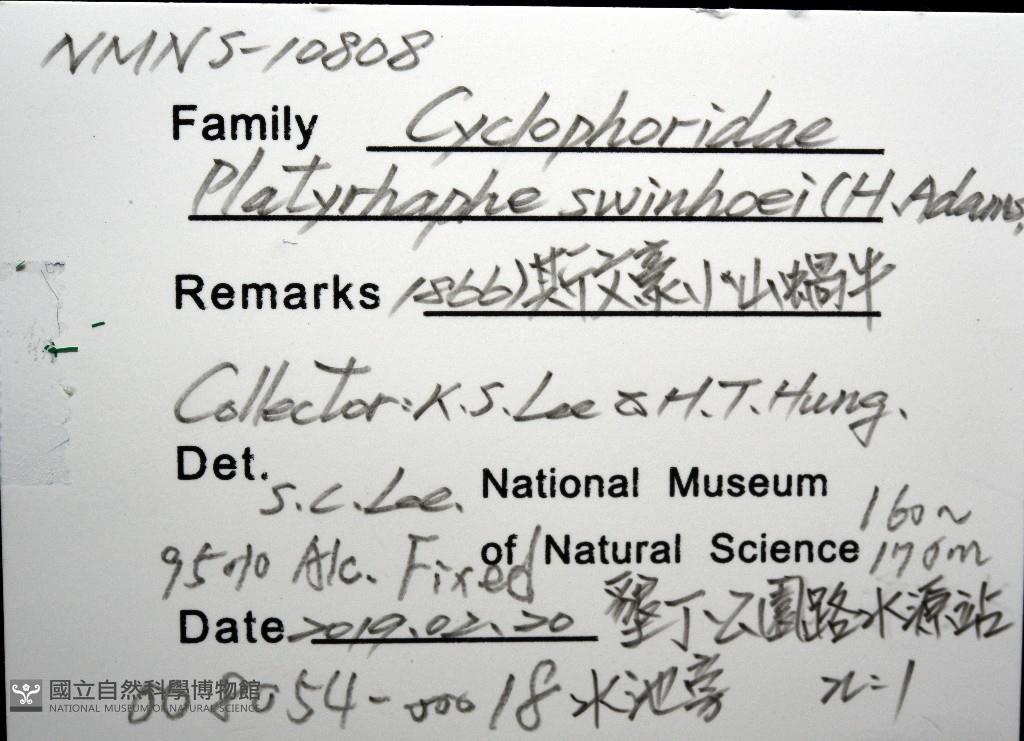 NMNS-10808
Family Cyclophoridae
Platyrhaphe swinhoei (H. Adams,
Remarks 1866) 斯文豪小山蝸牛
Collector: K.S. Lee & H.T. Hung.
Det. S.C. Lee. National Museum
160~
of Natural Science 170m
95% Alc. Fixed
Date 2019.02.20 墾丁公園路水源站
008054-00018 水池旁 n=1
國立自然科學博物館
NATIONAL MUSEUM OF NATURAL SCIENCE